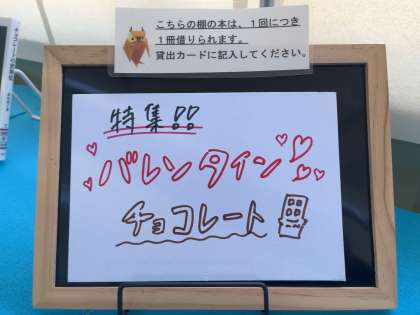 こちらの棚の本は、１回につき
１冊借りられます。
貸出カードに記入してください。
特集!!
バレンタイン
チョコレート